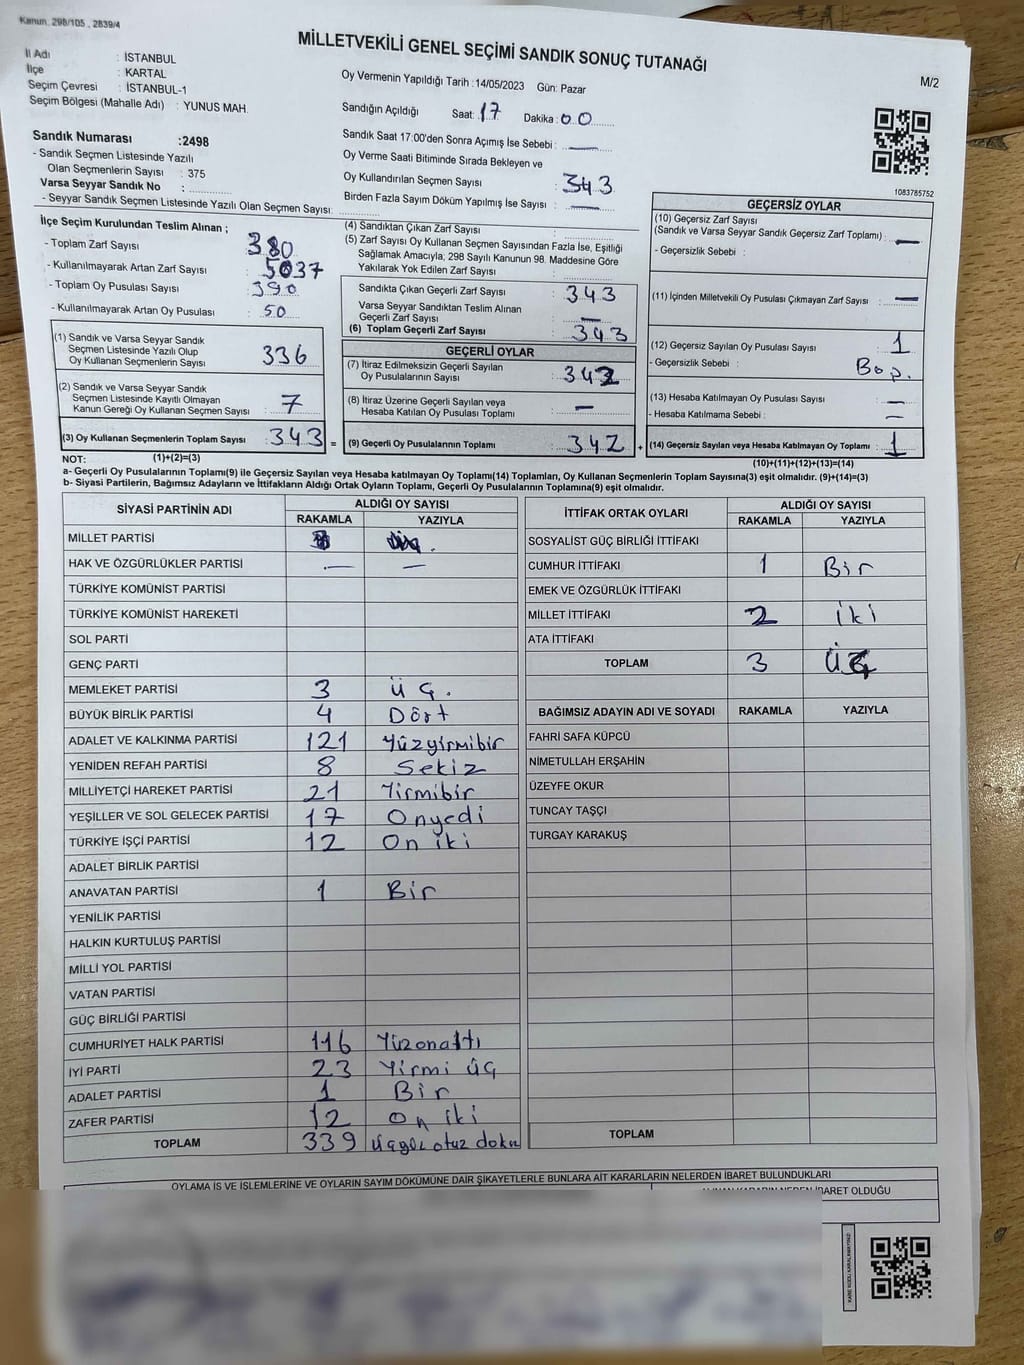 Kanun. 298/105 , 2839/4
MİLLETVEKİLİ GENEL SEÇİMİ SANDIK SONUÇ TUTANAĞI
M/2
İl Adı : İSTANBUL
İlçe : KARTAL
Seçim Çevresi : İSTANBUL-1
Seçim Bölgesi (Mahalle Adı) : YUNUS MAH.
Oy Vermenin Yapıldığı Tarih : 14/05/2023 Gün: Pazar
Sandığın Açıldığı Saat: 17 Dakika : 00
Sandık Saat 17:00'den Sonra Açımış İse Sebebi : —
Oy Verme Saati Bitiminde Sırada Bekleyen ve
Oy Kullandırılan Seçmen Sayısı : 343
Birden Fazla Sayım Döküm Yapılmış İse Sayısı : —
Sandık Numarası :2498
- Sandık Seçmen Listesinde Yazılı
Olan Seçmenlerin Sayısı : 375
Varsa Seyyar Sandık No :
- Seyyar Sandık Seçmen Listesinde Yazılı Olan Seçmen Sayısı:
1083785752
İlçe Seçim Kurulundan Teslim Alınan ;
- Toplam Zarf Sayısı : 380
- Kullanılmayarak Artan Zarf Sayısı : 37
- Toplam Oy Pusulası Sayısı : 390
- Kullanılmayarak Artan Oy Pusulası : 50
(1) Sandık ve Varsa Seyyar Sandık
Seçmen Listesinde Yazılı Olup
Oy Kullanan Seçmenlerin Sayısı : 336
(2) Sandık ve Varsa Seyyar Sandık
Seçmen Listesinde Kayıtlı Olmayan
Kanun Gereği Oy Kullanan Seçmen Sayısı : 7
(3) Oy Kullanan Seçmenlerin Toplam Sayısı : 343 =
(4) Sandıktan Çıkan Zarf Sayısı :
(5) Zarf Sayısı Oy Kullanan Seçmen Sayısından Fazla İse, Eşitliği
Sağlamak Amacıyla; 298 Sayılı Kanunun 98. Maddesine Göre
Yakılarak Yok Edilen Zarf Sayısı :
Sandıkta Çıkan Geçerli Zarf Sayısı : 343
Varsa Seyyar Sandıktan Teslim Alınan
Geçerli Zarf Sayısı : —
(6) Toplam Geçerli Zarf Sayısı : 343
GEÇERLİ OYLAR
(7) İtiraz Edilmeksizin Geçerli Sayılan
Oy Pusulalarının Sayısı : 342
(8) İtiraz Üzerine Geçerli Sayılan veya
Hesaba Katılan Oy Pusulası Toplamı : —
(9) Geçerli Oy Pusulalarının Toplamı : 342 +
GEÇERSİZ OYLAR
(10) Geçersiz Zarf Sayısı
(Sandık ve Varsa Seyyar Sandık Geçersiz Zarf Toplamı) : —
- Geçersizlik Sebebi :
(11) İçinden Milletvekili Oy Pusulası Çıkmayan Zarf Sayısı : —
(12) Geçersiz Sayılan Oy Pusulası Sayısı : 1
- Geçersizlik Sebebi : Boş.
(13) Hesaba Katılmayan Oy Pusulası Sayısı : —
- Hesaba Katılmama Sebebi : —
(14) Geçersiz Sayılan veya Hesaba Katılmayan Oy Toplamı : 1
NOT: (1)+(2)=(3) (10)+(11)+(12)+(13)=(14)
a- Geçerli Oy Pusulalarının Toplamı(9) ile Geçersiz Sayılan veya Hesaba katılmayan Oy Toplamı(14) Toplamları, Oy Kullanan Seçmenlerin Toplam Sayısına(3) eşit olmalıdır. (9)+(14)=(3)
b- Siyasi Partilerin, Bağımsız Adayların ve İttifakların Aldığı Ortak Oyların Toplamı, Geçerli Oy Pusulalarının Toplamına(9) eşit olmalıdır.
SİYASİ PARTİNİN ADI ALDIĞI OY SAYISI
RAKAMLA YAZIYLA
MİLLET PARTİSİ
HAK VE ÖZGÜRLÜKLER PARTİSİ — —
TÜRKİYE KOMÜNİST PARTİSİ
TÜRKİYE KOMÜNİST HAREKETİ
SOL PARTİ
GENÇ PARTİ
MEMLEKET PARTİSİ 3 Üç.
BÜYÜK BİRLİK PARTİSİ 4 Dört
ADALET VE KALKINMA PARTİSİ 121 Yüzyirmibir
YENİDEN REFAH PARTİSİ 8 Sekiz
MİLLİYETÇİ HAREKET PARTİSİ 21 Yirmibir
YEŞİLLER VE SOL GELECEK PARTİSİ 17 Onyedi
TÜRKİYE İŞÇİ PARTİSİ 12 On iki
ADALET BİRLİK PARTİSİ
ANAVATAN PARTİSİ 1 Bir
YENİLİK PARTİSİ
HALKIN KURTULUŞ PARTİSİ
MİLLİ YOL PARTİSİ
VATAN PARTİSİ
GÜÇ BİRLİĞİ PARTİSİ
CUMHURİYET HALK PARTİSİ 116 Yüzonaltı
İYİ PARTİ 23 Yirmi üç
ADALET PARTİSİ 1 Bir
ZAFER PARTİSİ 12 On iki
TOPLAM 339 otuz
İTTİFAK ORTAK OYLARI ALDIĞI OY SAYISI
RAKAMLA YAZIYLA
SOSYALİST GÜÇ BİRLİĞİ İTTİFAKI
CUMHUR İTTİFAKI 1 Bir
EMEK VE ÖZGÜRLÜK İTTİFAKI
MİLLET İTTİFAKI 2 İki
ATA İTTİFAKI
TOPLAM 3 Üç
BAĞIMSIZ ADAYIN ADI VE SOYADI RAKAMLA YAZIYLA
FAHRİ SAFA KÜPCÜ
NİMETULLAH ERŞAHİN
ÜZEYFE OKUR
TUNCAY TAŞÇI
TURGAY KARAKUŞ
TOPLAM
OYLAMA İŞ VE İŞLEMLERİNE VE OYLARIN SAYIM DÖKÜMÜNE DAİR ŞİKAYETLERLE BUNLARA AİT KARARLARIN NELERDEN İBARET BULUNDUKLARI
ALINAN KARARIN NEDEN İBARET OLDUĞU